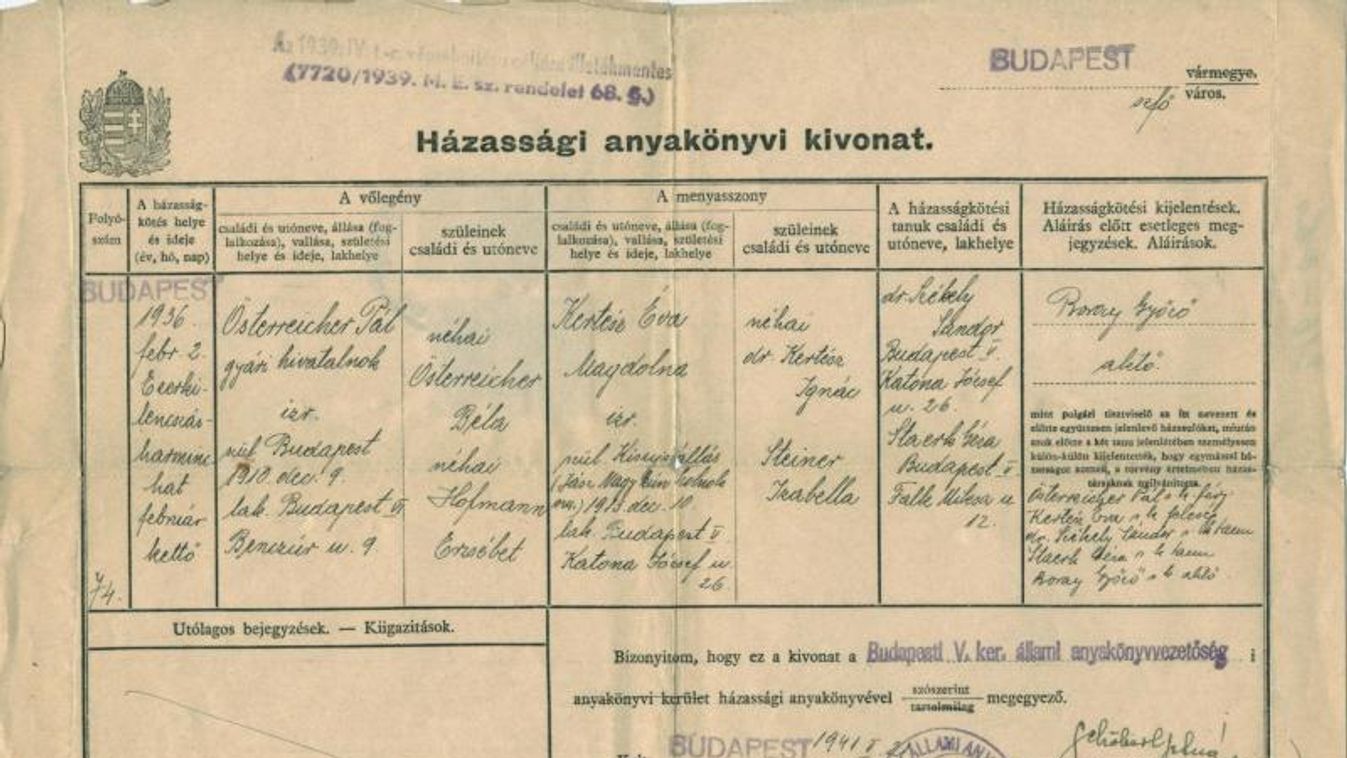 Az 1939: IV. t.-c. végrehajtása céljára illetékmentes
(7720/1939. M. E. sz. rendelet 68. §.)
BUDAPEST
vármegye.
szfő város.
Házassági anyakönyvi kivonat.
Folyó-
szám
A házasság-
kötés helye
és ideje
(év, hó, nap)
A vőlegény
családi és utóneve, állása (fog-
lalkozása), vallása, születési
helye és ideje, lakhelye
szüleinek
családi és utóneve
A menyasszony
családi és utóneve, állása (fog-
lalkozása), vallása, születési
helye és ideje, lakhelye
szüleinek
családi és utóneve
A házasságkötési
tanuk családi és
utóneve, lakhelye
Házasságkötési kijelentések.
Aláírás előtt esetleges meg-
jegyzések. Aláírások.
74.
BUDAPEST
1936.
febr 2.
Ezerki-
lencszáz-
harminc
hat
február
kettő
Österreicher Pál
gyári hivatalnok
izr.
szül Budapest
1910. dec. 9.
lak. Budapest VI.
Benczúr u. 9.
néhai
Österreicher
Béla
néhai
Hofmann
Erzsébet
Kertész Éva
Magdolna
izr.
szül Kisujszállás
(Jász Nagykun Szolnok
vm.) 1913 dec. 10.
lak. Budapest V.
Katona József u.
26.
néhai
dr. Kertész
Ignác
Steiner
Izabella
dr Székely
Sándor
Budapest V.
Katona József
u. 26.
Staerk Géza
Budapest V
Falk Miksa u
12.
Győző
mint polgári tisztviselő az itt nevezett és
előtte együttesen jelenlevő házasulókat, miután
azok előtte a két tanu jelenlétében személyesen
külön-külön kijelentették, hogy egymással há-
zasságot kötnek, a törvény értelmében házas-
társaknak nyilvánította.
Österreicher Pál s. k. férj
Kertész Éva s. k. feleség
dr. Székely Sándor s. k. tanu
Staerk Géza s. k. tanu
Győző s. k.
Utólagos bejegyzések. — Kiigazítások.
Bizonyítom, hogy ez a kivonat a Budapesti V. ker. állami anyakönyvvezetőség i
anyakönyvi kerület házassági anyakönyvével szószerint megegyező.
tartalmilag
BUDAPEST 1941
ÁLLAMI ANY